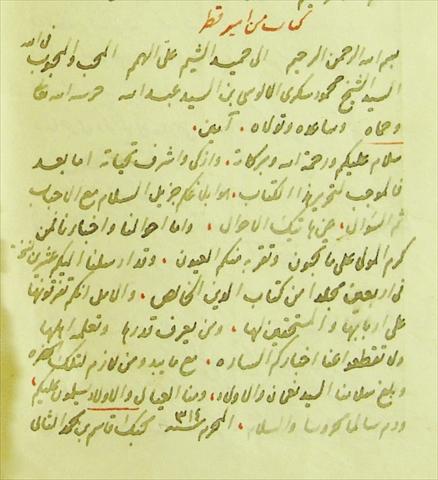 كتاب من امير قطر
بسم الله الرحمن الرحيم الى حميد الشيم على الهمم المحب والمحبوب في الله
السيد الشيخ محمود شكري الالوسي بن السيد عبد الله حرسه الله
وحماه وساعده وتولاه . آمين .
سلام عليكم ورحمة الله وبركاته . وازكى واشرف تحياته اما بعد
فالموجب لتحرير هذا الكتاب . هو ابلاغكم جزيل السلام مع الاحباب
ثم السؤال . عن هاتيك الاحوال . واما احوالنا واخبارنا فمن
كرم المولى على ما تحبون وتقر به منكم العيون . وقد ارسلنا اليكم عشرين نسخة
في اربعين مجلدا من كتاب الدين الخالص . والامل انكم تفرقونها
على اربابها والمستحقين لها . ومن يعرف قدرها وتعلمه اهلها
ولا تقطعوا عنا اخباركم الساره . مع ما يبدو من لازم لتلك
وبلغ سلامنا السيد نعمان والاولاد . ومنا العيال والاولاد يسلمون عليكم .
ودم سالما محروسا والسلام . المحرم سنة ٣١٤ محبك قاسم بن محمد الثاني